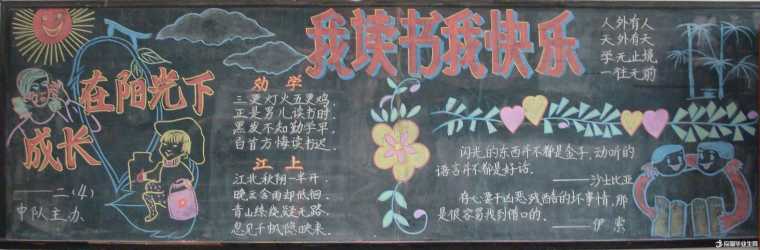 在阳光下
成长
——二(4)
中队主办
我读书我快乐
劝学
三更灯火五更鸡,
正是男儿读书时.
黑发不知勤学早,
白首方悔读书迟.
江上
江北秋阴一半开,
晚云含雨却低徊.
青山缭绕疑无路,
忽见千帆隐映来.
人外有人
天外有天
学无止境
一往无前
闪光的东西并不都是金子,动听的
语言并不都是好话.
——沙士比亚
存心要干凶恶残酷的坏事情,那
是很容易找到借口的.
——伊索
应届毕业生网